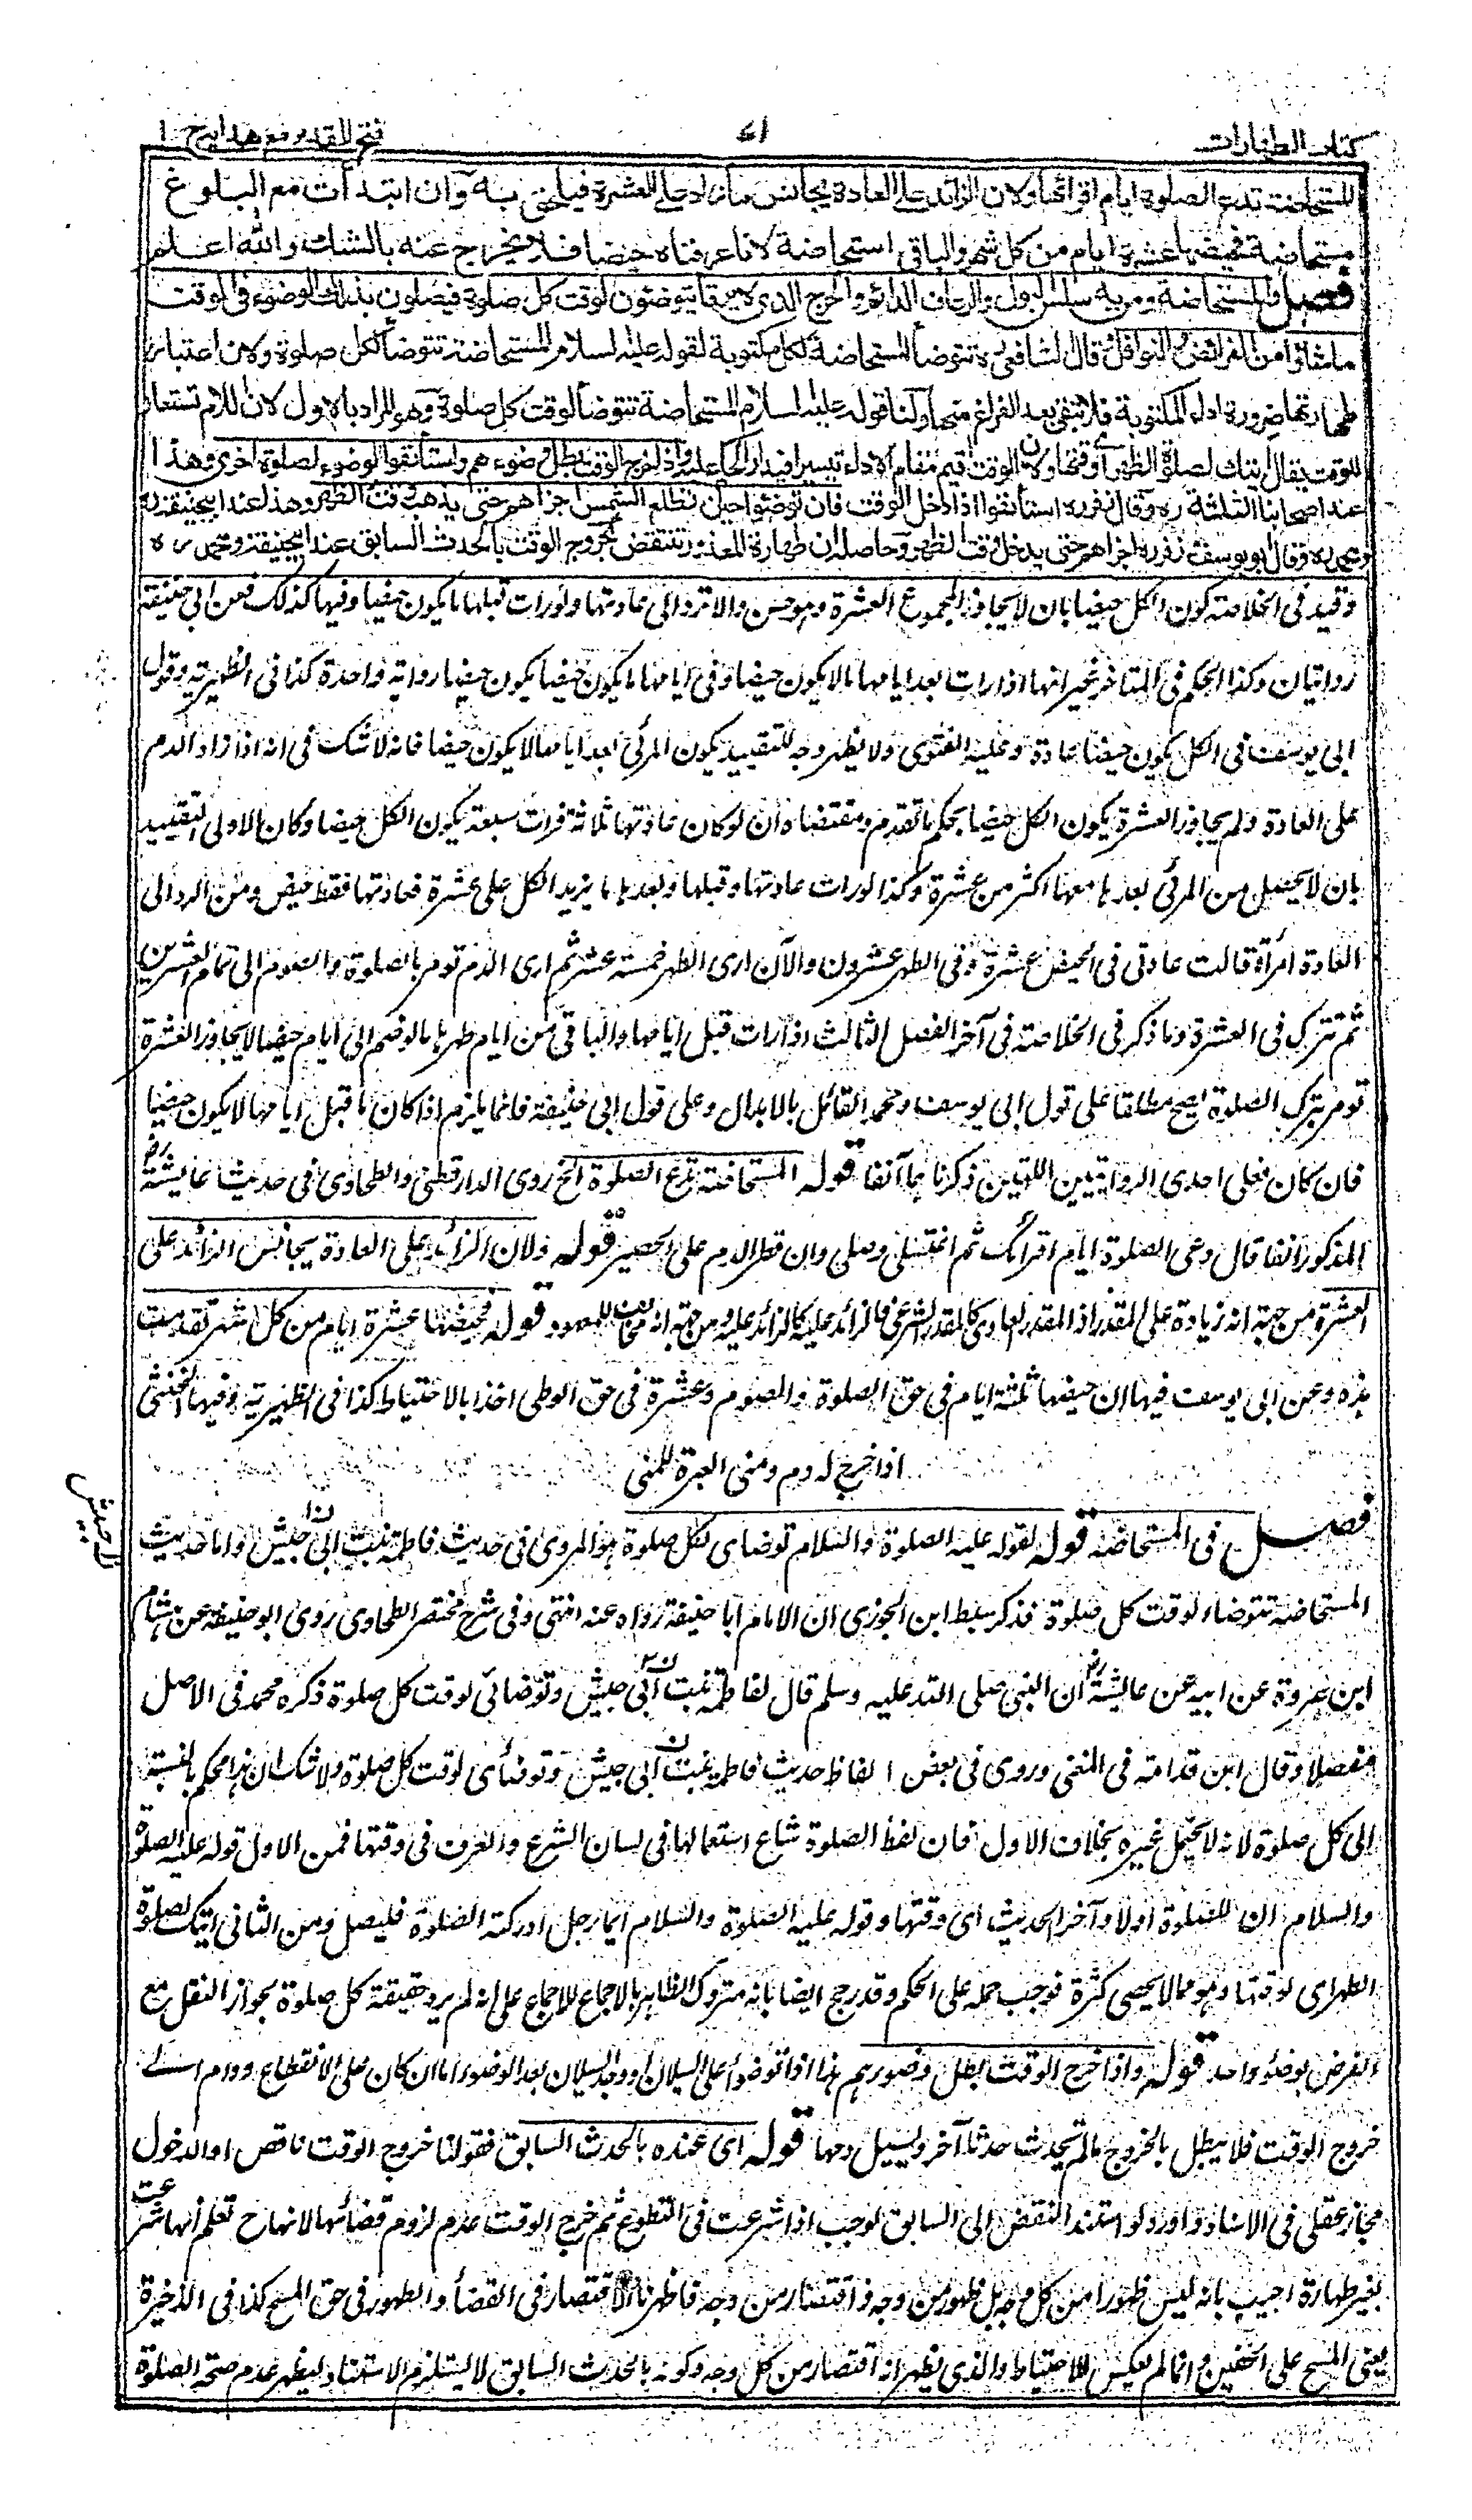 كتاب الطهارات
٧١
فتح القدير مع هدايہ ج ١
المستحاضة تدع الصلوة ايام اقرائها ولان الزائد على العادة يجانس ما زاد على العشرة فيلحق به وان ابتدأت مع البلوغ
مستحاضة فحيضها عشرة ايام من كل شهر والباقي استحاضة لانا عرفناه حيضا فلا يخرج عنه بالشك والله اعلم
فصل والمستحاضة ومن به سلس البول والرعاف الدائم والجرح الذي لا يرقأ يتوضئون لوقت كل صلوة فيصلون بذلك الوضوء في الوقت
ما شاؤا من الفرائض والنوافل وقال الشافعي ره تتوضأ المستحاضة لكل مكتوبة لقوله عليه السلام المستحاضة تتوضأ لكل صلوة ولان اعتبار
طهارتها ضرورة اداء المكتوبة فلا تبقى بعد الفراغ منها ولنا قوله عليه السلام المستحاضة تتوضأ لوقت كل صلوة وهو المراد بالاول لان اللام تستعار
للوقت يقال اتيك لصلوة الظهر اي وقتها ولان الوقت اقيم مقام الاداء تيسيرا فيدار الحكم عليه واذا خرج الوقت بطل وضوءهم واستأنفوا الوضوء لصلوة اخرى وهذا
عند اصحابنا الثلثة ره وقال زفر ره استأنفوا اذا دخل الوقت فان توضئوا حين تطلع الشمس اجزأهم حتى يذهب وقت الظهر وهذا عند ابيحنيفة ره
ومحمد ره وقال ابو يوسف وزفر ره اجزاهم حتى يدخل وقت الظهر وحاصله ان طهارة المعذور تنتقض بخروج الوقت بالحدث السابق عند ابيحنيفة ومحمد ره
وقيد في الخلاصة كون الكل حيضا بان لا يجاوز المجموع العشرة وهو حسن والا ترد الى عادتها ولو رأت قبلها ما يكون حيضا وفيها كذلك فعن ابي حنيفة
روايتان وكذا الحكم في المتأخر غير انها اذا رات بعد ايامها ما لا يكون حيضا وفي ايامها ما يكون حيضا يكون حيضا رواية واحدة كذا في الظهيرية وقول
ابي يوسف في الكل يكون حيضا عادة وعليه الفتوى ولا يظهر وجه للتقييد بكون المرئي بعد ايامها لا يكون حيضا فانه لا شك في انه اذا زاد الدم
على العادة ولم يجاوز العشرة يكون الكل حيضا بحكم ما تقدم ومقتضاه ان لو كان عادتها ثلاثة فرات سبعة يكون الكل حيضا وكان الاولى التقييد
بان لا يحصل من المرئي بعدها معها اكثر من عشرة وكذا لو رات عادتها وقبلها وبعدها ما يزيد الكل على عشرة فعادتها فقط حيض ومن الرد الى
العادة امرأة قالت عادتي في الحيض عشرة وفي الطهر عشرون والآن ارى الطهر خمسة عشر ثم ارى الدم تومر بالصلوة والصوم الى تمام العشرين
ثم تترك في العشرة وما ذكر في الخلاصة في آخر الفصل الثالث اذا رات قبل ايامها والباقي من ايام طهرها ما لو ضم الى ايام حيضها لا يجاوز العشرة
تومر بترك الصلوة يصح مطلقا على قول ابي يوسف ومحمد القائل بالابدال وعلى قول ابي حنيفة فانما يلزم اذا كان ما قبل ايامها لا يكون حيضا
فان كان فعلى احدى الروايتين اللتين ذكرناهما آنفا قوله المستحاضة تدع الصلوة الخ روى الدارقطني والطحاوي في حديث عايشة رض
المذكور آنفا قال دعي الصلوة ايام اقرائك ثم اغتسلي وصلي وان قطر الدم على الحصير قوله ولان الزائد على العادة يجانس الزائد على
العشرة من جهة انه زيادة على المقدر اذ المقدر العادي كالمقدر الشرعي فالزائد عليه كالزائد عليه ومن جهة انه مخالف للمعهود قوله فحيضها عشرة ايام من كل شهر تقدمت
هذه وعن ابي يوسف فيها ان حيضها ثلثة ايام في حق الصلوة والصوم وعشرة في حق الوطي اخذا بالاحتياط كذا في الظهيرية وفيها الخنثى
اذا خرج له دم ومني العبرة للمني
فصل في المستحاضة قوله لقوله عليه الصلوة والسلام توضاي لكل صلوة هو المروي في حديث فاطمة بنت ابي حبيش واما حديث
المستحاضة تتوضاء لوقت كل صلوة فذكر سبط ابن الجوزي ان الامام ابا حنيفة رواه عنه انتهى وفي شرح مختصر الطحاوي روى ابو حنيفة عن هشام
ابن عروة عن ابيه عن عايشة رض ان النبي صلى الله عليه وسلم قال لفاطمة بنت ابي حبيش وتوضائي لوقت كل صلوة ذكره محمد في الاصل
مفصلا وقال ابن قدامة في المغني وروى في بعض الفاظ حديث فاطمة بنت ابي حبيش وتوضأي لوقت كل صلوة ولا شك ان هذا محكم بالنسبة
الى كل صلوة لانه لا يحتمل غيره بخلاف الاول فان لفظ الصلوة شاع استعمالها في لسان الشرع والعرف في وقتها فمن الاول قوله عليه الصلوة
والسلام ان للصلوة اولا وآخرا الحديث اي وقتها وقوله عليه الصلوة والسلام ايما رجل ادركته الصلوة فليصل ومن الثاني اتيك لصلوة
الظهر اي لوقتها وهو مما لا يحصى كثرة فوجب حمله على المحكم وقد رجح ايضا بانه متروك الظاهر بالاجماع للاجماع على انه لم يرد حقيقة كل صلوة بجواز النفل مع
الفرض بوضوء واحد قوله واذا خرج الوقت بطل وضوءهم هذا اذا توضؤا على السيلان او وجد السيلان بعد الوضوء اما ان كان على الانقطاع ودام الى
خروج الوقت فلا يبطل بالخروج ما لم يحدث حدثا آخر ويسيل دمها قوله اي عنده بالحدث السابق فقولنا خروج الوقت ناقض او الدخول
مجاز عقلي في الاسناد واورد لو استند النقض الى السابق لوجب اذا شرعت في التطوع ثم خرج الوقت عدم لزوم قضائها لانها ح تعلم انها شرعت
بغير طهارة اجيب بانه ليس ظهورا من كل وجه بل ظهور من وجه واقتصار من وجه فاظهرنا الاقتصار في القضأ والظهور في حق المسح كذا في الذخيرة
يعني المسح على الخفين وانما لم يعكس للاحتياط والذي يظهر انه اقتصار من كل وجه وكونه بالحدث السابق لا يستلزم الاستناد ليظهر عدم صحة الصلوة